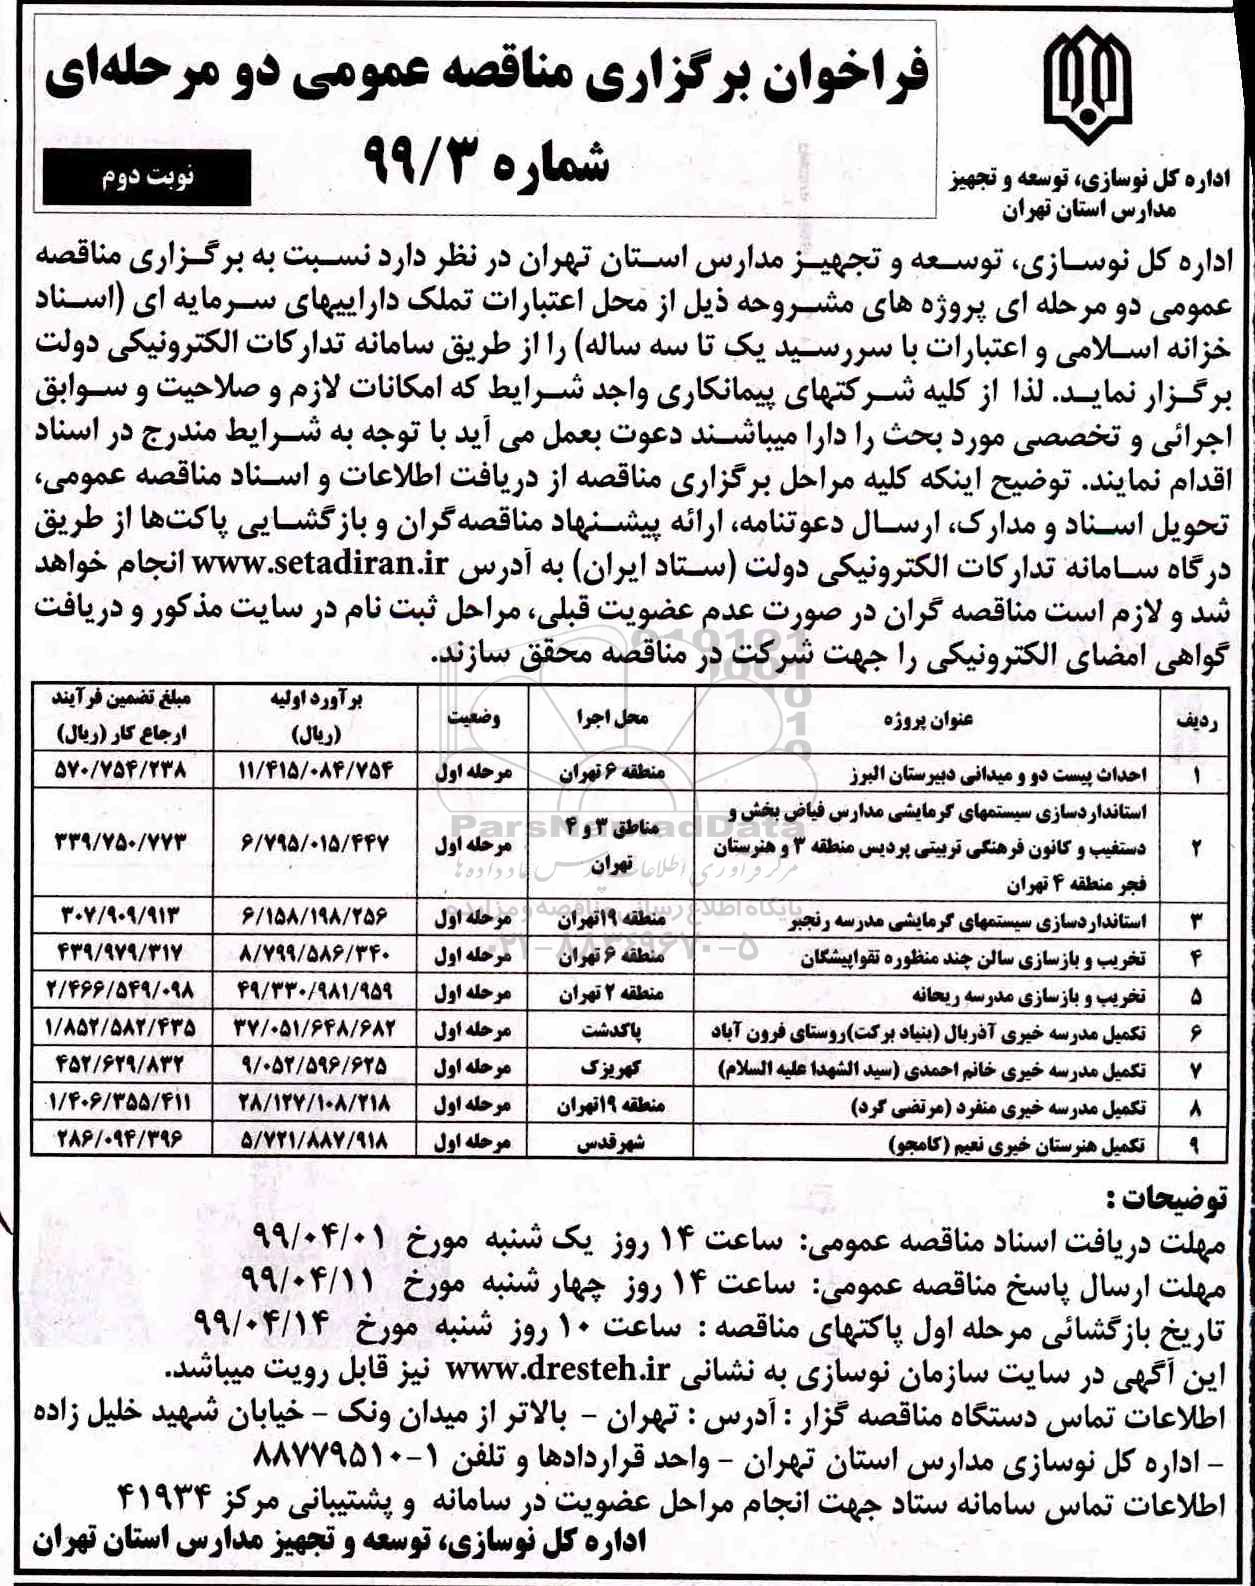 اداره کل نوسازی، توسعه و تجهیز
مدارس استان تهران
فراخوان برگزاری مناقصه عمومی دو مرحله‌ای
شماره ۹۹/۳
نوبت دوم
اداره کل نوسازی، توسعه و تجهیز مدارس استان تهران در نظر دارد نسبت به برگزاری مناقصه
عمومی دو مرحله ای پروژه های مشروحه ذیل از محل اعتبارات تملک داراییهای سرمایه ای (اسناد
خزانه اسلامی و اعتبارات با سررسید یک تا سه ساله) را از طریق سامانه تدارکات الکترونیکی دولت
برگزار نماید. لذا از کلیه شرکتهای پیمانکاری واجد شرایط که امکانات لازم و صلاحیت و سوابق
اجرائی و تخصصی مورد بحث را دارا میباشند دعوت بعمل می آید با توجه به شرایط مندرج در اسناد
اقدام نمایند. توضیح اینکه کلیه مراحل برگزاری مناقصه از دریافت اطلاعات و اسناد مناقصه عمومی،
تحویل اسناد و مدارک، ارسال دعوتنامه، ارائه پیشنهاد مناقصه‌گران و بازگشایی پاکت‌ها از طریق
درگاه سامانه تدارکات الکترونیکی دولت (ستاد ایران) به آدرس www.setadiran.ir انجام خواهد
شد و لازم است مناقصه گران در صورت عدم عضویت قبلی، مراحل ثبت نام در سایت مذکور و دریافت
گواهی امضای الکترونیکی را جهت شرکت در مناقصه محقق سازند.
ردیف عنوان پروژه محل اجرا وضعیت برآورد اولیه (ریال) مبلغ تضمین فرآیند ارجاع کار (ریال)
۱ احداث پیست دو و میدانی دبیرستان البرز منطقه ۶ تهران مرحله اول ۱۱/۴۱۵/۰۸۴/۷۵۴ ۵۷۰/۷۵۴/۲۳۸
۲ استانداردسازی سیستمهای گرمایشی مدارس فیاض بخش و
دستغیب و کانون فرهنگی تربیتی پردیس منطقه ۳ و هنرستان
فجر منطقه ۴ تهران مناطق ۳ و ۴ تهران مرحله اول ۶/۷۹۵/۰۱۵/۴۴۷ ۳۳۹/۷۵۰/۷۷۳
۳ استانداردسازی سیستمهای گرمایشی مدرسه رنجبر منطقه ۱۹تهران مرحله اول ۶/۱۵۸/۱۹۸/۲۵۶ ۳۰۷/۹۰۹/۹۱۳
۴ تخریب و بازسازی سالن چند منظوره تقواپیشگان منطقه ۶ تهران مرحله اول ۸/۷۹۹/۵۸۶/۳۴۰ ۴۳۹/۹۷۹/۳۱۷
۵ تخریب و بازسازی مدرسه ریحانه منطقه ۲ تهران مرحله اول ۴۹/۳۳۰/۹۸۱/۹۵۹ ۲/۴۶۶/۵۴۹/۰۹۸
۶ تکمیل مدرسه خیری آذربال (بنیاد برکت)روستای فرون آباد پاکدشت مرحله اول ۳۷/۰۵۱/۶۴۸/۶۸۲ ۱/۸۵۲/۵۸۲/۴۳۵
۷ تکمیل مدرسه خیری خانم احمدی (سید الشهدا علیه السلام) کهریزک مرحله اول ۹/۰۵۲/۵۹۶/۶۲۵ ۴۵۲/۶۲۹/۸۳۲
۸ تکمیل مدرسه خیری منفرد (مرتضی گرد) منطقه ۱۹تهران مرحله اول ۲۸/۱۲۷/۱۰۸/۲۱۸ ۱/۴۰۶/۳۵۵/۴۱۱
۹ تکمیل هنرستان خیری نعیم (کامجو) شهرقدس مرحله اول ۵/۷۲۱/۸۸۷/۹۱۸ ۲۸۶/۰۹۴/۳۹۶
ParsNamadData
پایگاه اطلاع رسانی مناقصه و مزایده
۰۲۱-۸۸۳۴۹۶۷۰-۵
توضیحات :
مهلت دریافت اسناد مناقصه عمومی: ساعت ۱۴ روز یک شنبه مورخ ۹۹/۰۴/۰۱
مهلت ارسال پاسخ مناقصه عمومی: ساعت ۱۴ روز چهار شنبه مورخ ۹۹/۰۴/۱۱
تاریخ بازگشائی مرحله اول پاکتهای مناقصه : ساعت ۱۰ روز شنبه مورخ ۹۹/۰۴/۱۴
این آگهی در سایت سازمان نوسازی به نشانی www.dresteh.ir نیز قابل رویت میباشد.
اطلاعات تماس دستگاه مناقصه گزار : آدرس : تهران - بالاتر از میدان ونک - خیابان شهید خلیل زاده
- اداره کل نوسازی مدارس استان تهران - واحد قراردادها و تلفن ۱-۸۸۷۷۹۵۱۰
اطلاعات تماس سامانه ستاد جهت انجام مراحل عضویت در سامانه و پشتیبانی مرکز ۴۱۹۳۴
اداره کل نوسازی، توسعه و تجهیز مدارس استان تهران